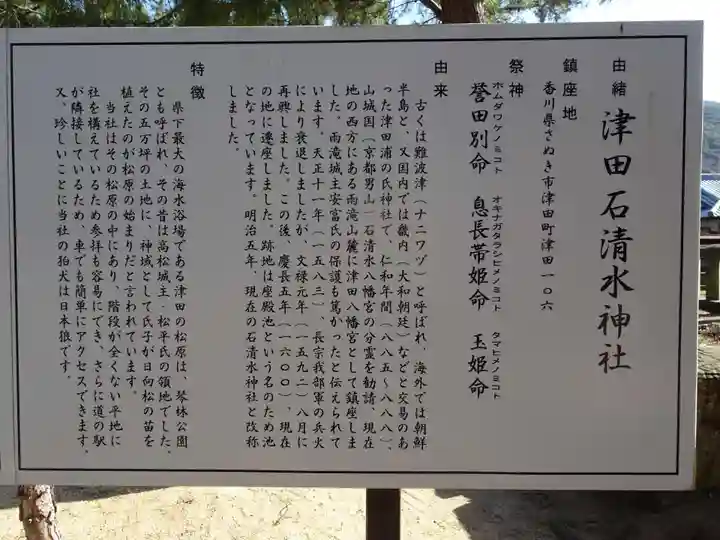 由緒
津田石清水神社
鎮座地
香川県さぬき市津田町津田一〇六
祭神
ホムダワケノミコト　オキナガタラシヒメノミコト　タマヒメノミコト
誉田別命　息長帯姫命　玉姫命
由来
古くは難波津（ナニワヅ）と呼ばれ、海外では朝鮮
半島と、又国内では畿内（大和朝廷）などと交易のあ
った津田浦の氏神社で、仁和年間（八八五〜八八八）、
山城国（京都男山）石清水八幡宮の分霊を勧請、現在
地の西方にある雨滝山麓に津田八幡宮として鎮座しま
した。雨滝城主安富氏の保護も篤かったと伝えられて
います。天正十一年（一五八三）、長宗我部軍の兵火
により衰退しましたが、文禄元年（一五九二）八月に
再興しました。この後、慶長五年（一六〇〇）、現在
の地に遷座しました。跡地は座殿池という名のため池
となっています。明治五年、現在の石清水神社と改称
しました。
特徴
県下最大の海水浴場である津田の松原は、琴林公園
とも呼ばれ、その昔は高松城主・松平氏の領地でした。
その五万坪の土地に、神域として氏子が日向松の苗を
植えたのが松原の始まりだと言われています。
当社はその松原の中にあり、階段が全くない平地に
社を構えているため参拝も容易にでき、さらに道の駅
が隣接しているため、車でも簡単にアクセスできます。
又、珍しいことに当社の狛犬は日本狼です。